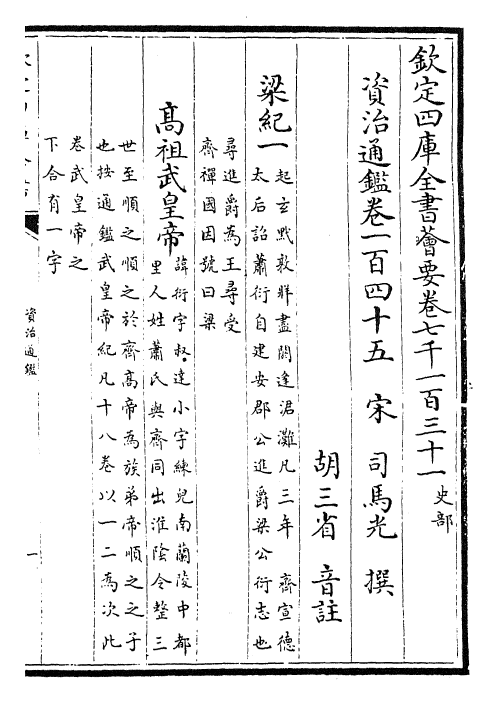 欽定四庫全書薈要卷七千一百三十一 史部
資治通鑑卷一百四十五 宋 司馬光 撰
胡三省 音註
梁紀一
起玄黓敦牂盡閼逢涒灘凡三年 齊宣德
太后詔蕭衍自建安郡公進爵梁公衍志也
尋進爵為王尋受
齊禪國因號曰梁
高祖武皇帝
諱衍字叔達小字練兒南蘭陵中都
里人姓蕭氏與齊同出淮陰令整三
世至順之順之於齊高帝為族弟帝順之之子
也按通鑑武皇帝紀凡十八卷以一二為次此
卷武皇帝之
下合有一字
資治通鑑
一